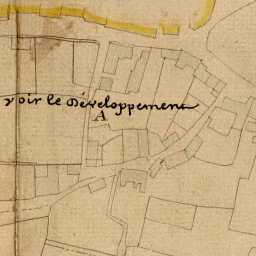 voir le Développement
A